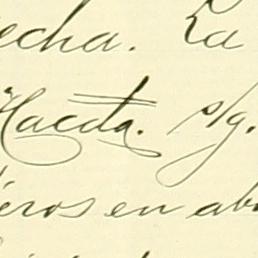 echa. La
Hacda. s/g.
eros en abo